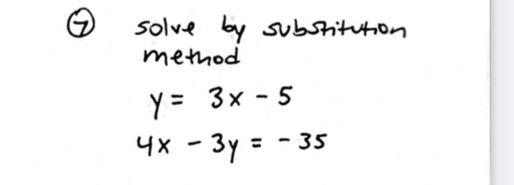 ⑦ solve by substitution
method
y = 3x - 5
4x - 3y = -35